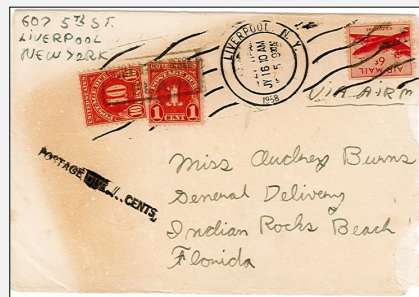 607 5TH ST.
LIVERPOOL
NEW YORK
LIVERPOOL, N.Y.
JY 16 10 AM
1958
AIR MAIL
6¢
VIA AIRM
POSTAGE DUE
10
POSTAGE DUE
1
1 CENT 1
POSTAGE DUE 11 CENTS
Miss Audrey Burns
General Delivery
Indian Rocks Beach
Florida